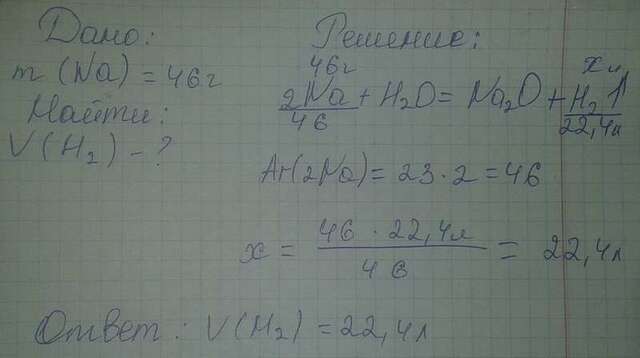 Дано:
m (Na) = 46г
Найти:
V(H₂) - ?
Решение:
46г
x л
2Na + H₂O = Na₂O + H₂↑
46
22,4л
Ar(2Na) = 23 · 2 = 46
x = 46 · 22,4л / 46 = 22,4л
Ответ: V(H₂) = 22,4л